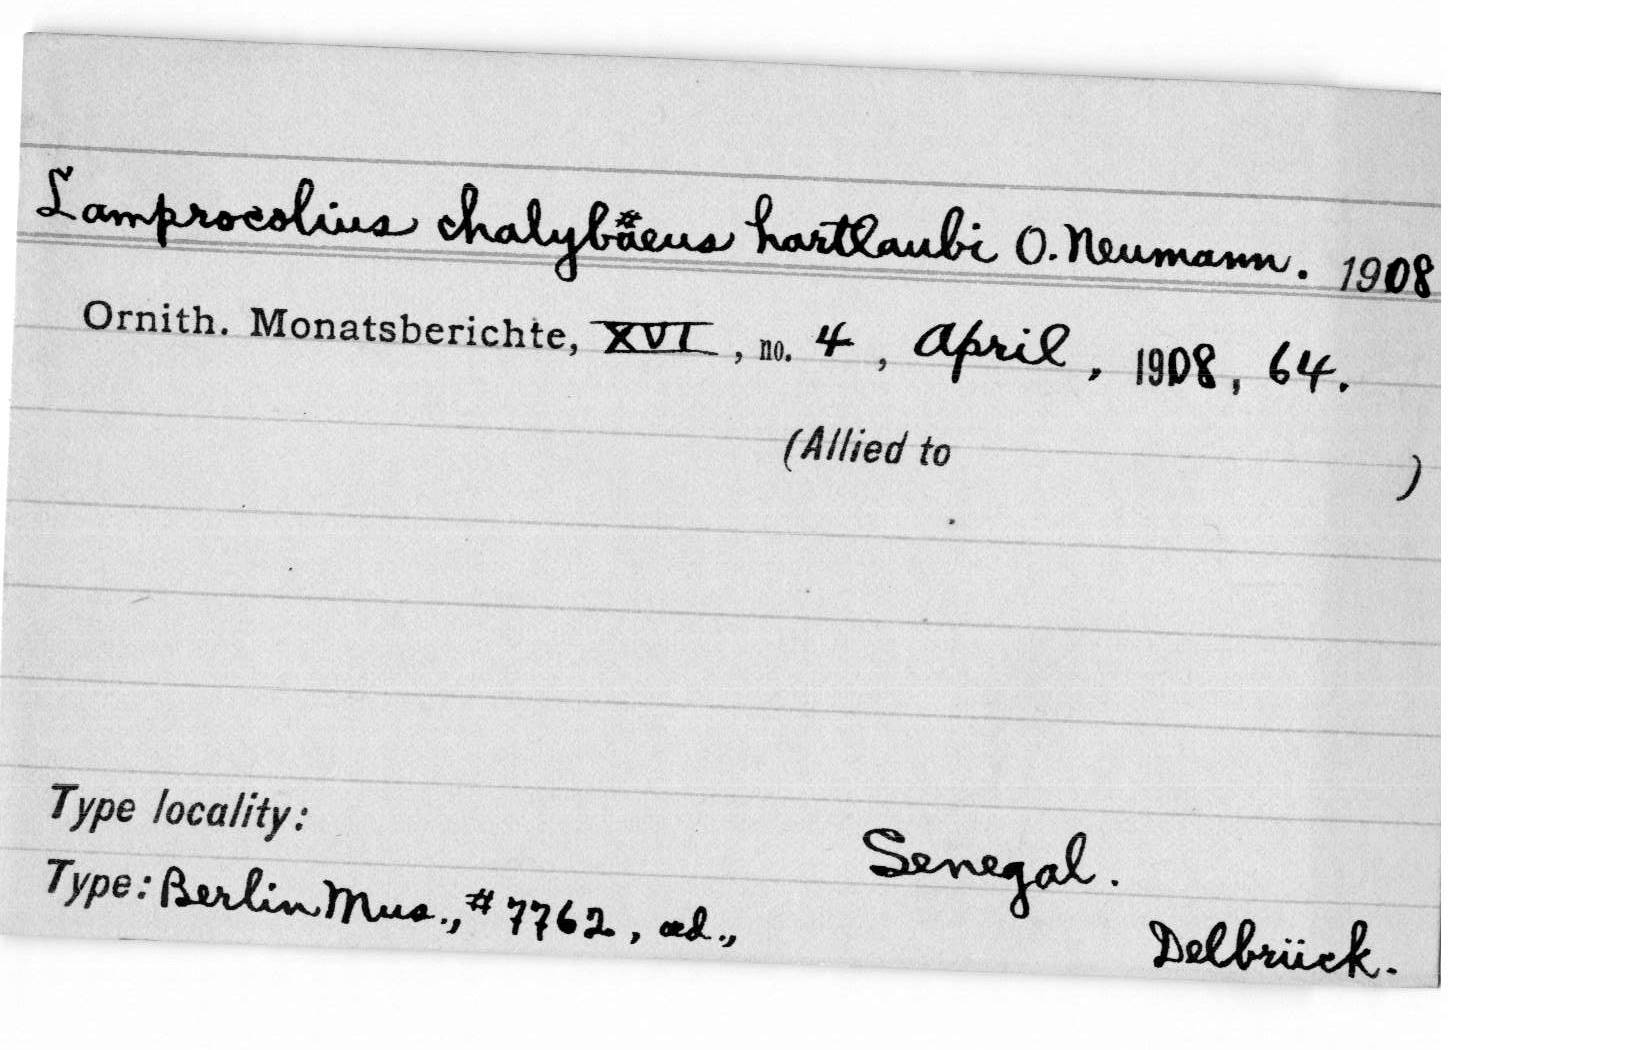 Lamprocolius chalybäeus hartlaubi O. Neumann. 1908
Ornith. Monatsberichte, XVI, no. 4, April, 1908, 64.
(Allied to )
Type locality:
Senegal.
Type: Berlin Mus., #7762, ad.,
Delbrück.